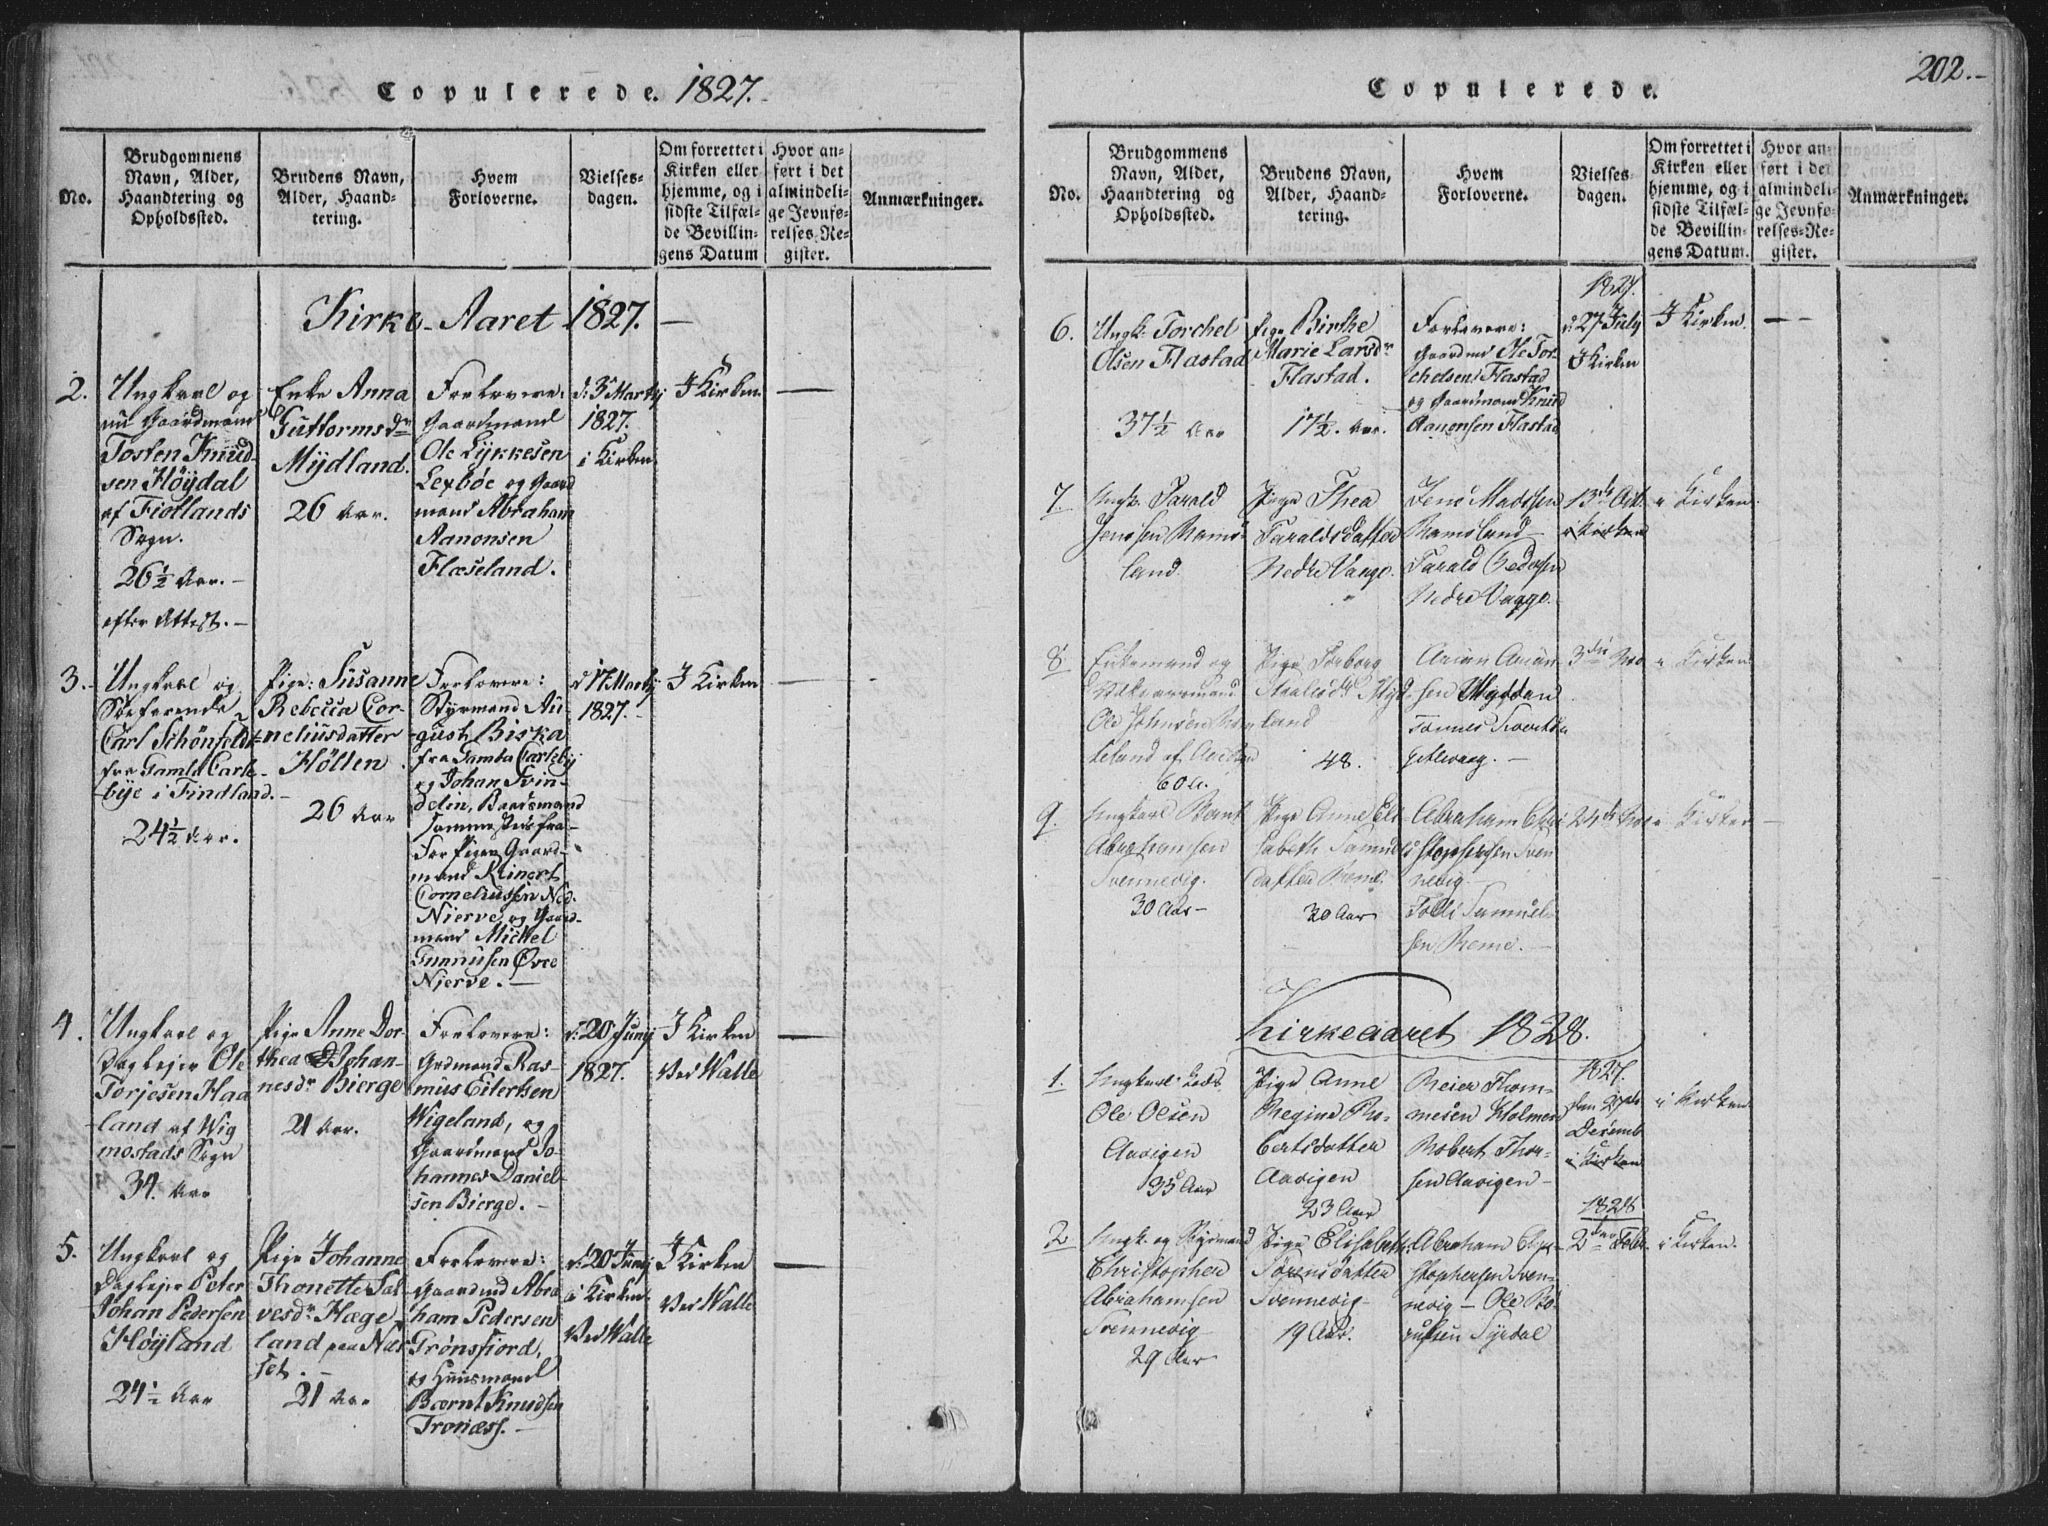 Copulerede. 1827.
No.
Brudgommens
Navn, Alder,
Haandtering og
Opholdssted.
Brudens Navn,
Alder, Haand-
tering.
Hvem
Forloverne.
Vielses-
dagen.
Om forrettet i
Kirken eller
hjemme, og i
sidste Tilfæl-
de Bevillin-
gens Datum
Hvor an-
ført i det
almindeli-
ge Jevnfø-
relses-Re-
gister.
Anmærkninger.
Kirke-Aaret 1827. —
2.
Ungkarl og
nu Gaardmand
Tosten Knud-
sen Höÿdal
af Fiotlands
Sogn.
26 ½ Aar. –
efter Attest. –
Enke Anna
Guttormsdr
Mÿdland.
26 Aar.
Forlovere:
Gaardmand
Ole Lÿkkesen
Lexböe og Gaard
mand Abraham
Aanonsen
Flæseland.
d: 3 Martij
1827.
i Kirken
I Kirken
3. –
Ungkarl og
Söefarende
Carl Schönfeldt
fra Gamla Carle-
bÿe i Findland. –
24 ½ Aar.
Pige: Susanne
Rebecca Cor-
neliusdatter
Höllen
26 Aar
Forlovere:
Stÿrmand Au-
gust Biska
fra Gamla Carlebÿ
og Johan Svin-
delin, Baadsmand
Sammesteds fra –
For Pigen Gaard-
mand Reinert
Corneliussen Ned.
Nierve og Gaard-
mand Mickel
Gunnusen Øvre
Nierve. –
d 17 Martij
1827. –
I Kirken
4.
Ungkarl og
Daglejer Ole
Torjesen Haa
land af Wig
mostads Sogn
34. Aar
Pige Anne Dor-
thea Johan-
nesdr Bierge
21 Aar.
Forlovere:
Grdmand Ras-
mus Eilertsen
Wigeland, og
Gaardmand Jo-
hannes Daniel-
sen Bierge. –
d: 20 Junij
1827.
I Kirken
Ved Walle
5.
Ungkarl og
Daglejer Peter
Johan Pedersen
Höÿland
24 ½ Aar
Pige Johanne
Thonette Sal-
vesdr Hæge
land paa Næs
set. –
21 Aar
Forlovere:
Gaardmd Abra
ham Pedersen
Grönsfiord,
og Huusmand
Bærnt Knudsen
Tronæss. –
d: 20 Junij
i Kirken
Ved Walle
I Kirken
Ved Walle
202. –
Copulerede.
No.
Brudgommens
Navn, Alder,
Haandtering og
Opholdssted.
Brudens Navn,
Alder, Haand-
tering.
Hvem
Forloverne.
Vielses-
dagen.
Om forrettet i
Kirken eller
hjemme, og i
sidste Tilfæl-
de Bevillin-
gens Datum.
Hvor an-
ført i det
almindeli-
ge Jevnfø-
relses-Re-
gister.
Anmærkninger.
6.
Ungk: Torchel
Olsen Flastad
37 ½ Aar
Pige Birthe
Marie Larsdr
Flastad.
17 ½. Aar.
Forlovere:
Gaardmd Ole Tor-
chelsen Flastad
og Gaardmand Knud
Aanonsen Flastad
1827.
d 27 July
I Kirken
I Kirken.
7.
Ungk. Tarald
Jenssen Rams-
land.
Pige Thea
Taraldsdatter
Nedre Vaage.
Jens Madssen
Ramsland –
Tarald Pedersen
Nedre Vagge.
13de Oct.
i Kirken
i Kirken.
8
Enkemand og
Ole Johnsen
60 A.
Pige Torborg
land
48.
Arian Arian
sen
Tönnes
3die No
i Kirken
9.
Ungkarl Bernt
Abrahamsen
Svennevig.
30 Aar –
Pige Anne Eli-
sabeth Samuels
datter Reme.
30 Aar
Abraham Chri
stophersen Sven
nevig –
Tolli Samuel-
sen Reme. –
24de Nov
i Kirken –
Kirkeaaret 1828.
1.
Ungkarl: Lods
Ole Olsen
Aavigen
35 Aar
Pige Anne
Regine Ro-
bertsdatter
Aavigen
23 Aar
Reier Thom-
mesen Holmen
Robert Thor-
sen Aavigen –
1827.
den 29de
Decemb
i Kirken
i Kirken.
2
Ungk. og Styrmand
Christopher
Abrahamsen
Svennevig
29 Aar
Pige Elisabeth
Sörensdatter
Svennevig –
19 Aar.
Abraham Chri-
stophersen Sven-
nevig – Ole Bö-
Syrdal
1828
2den Febr.
i Kirken.